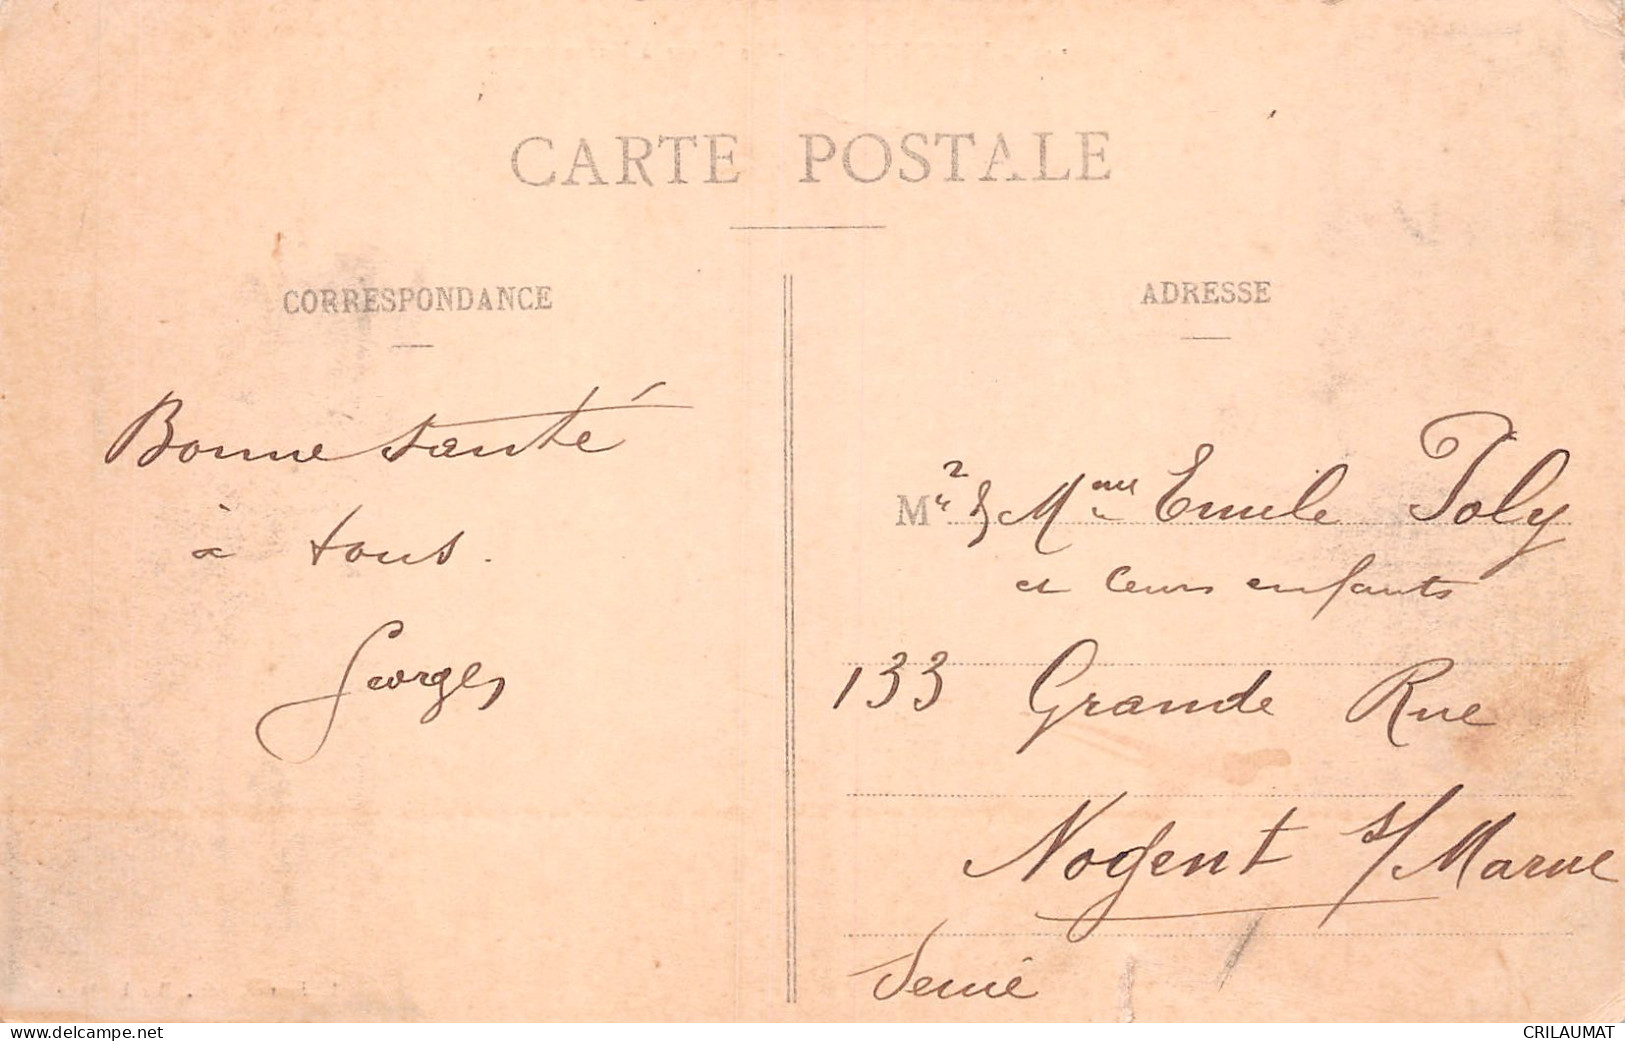 CARTE POSTALE
CORRESPONDANCE
ADRESSE
Bonne santé
à tous.
Georges
Mr & Mme Emile Joly
et leurs enfants
133 Grande Rue
Nogent s/ Marne
Seine
www.delcampe.net
CRILAUMAT